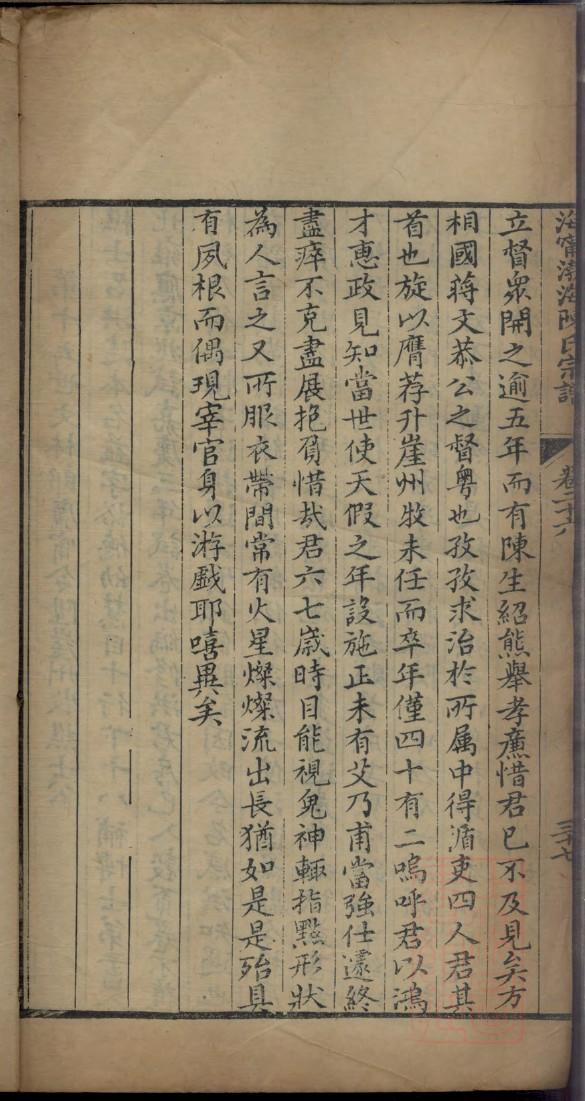 海寧渤海陳氏宗譜
卷二十六
三十七
立督衆開之逾五年而有陳生紹熊舉孝廉惜君已不及見矣方
相國蔣文恭公之督粤也孜孜求治於所属中得循吏四人君其
首也旋以膺荐升崖州牧未任而卒年僅四十有二嗚呼君以鴻
才惠政見知當世使天假之年設施正未有艾乃甫當強仕遽終
盡瘁不克盡展抱負惜哉君六七歲時目能視鬼神輒指點形狀
為人言之又所服衣帶間常有火星燦燦流出長猶如是是殆具
有夙根而偶現宰官身以游戲耶嘻異矣